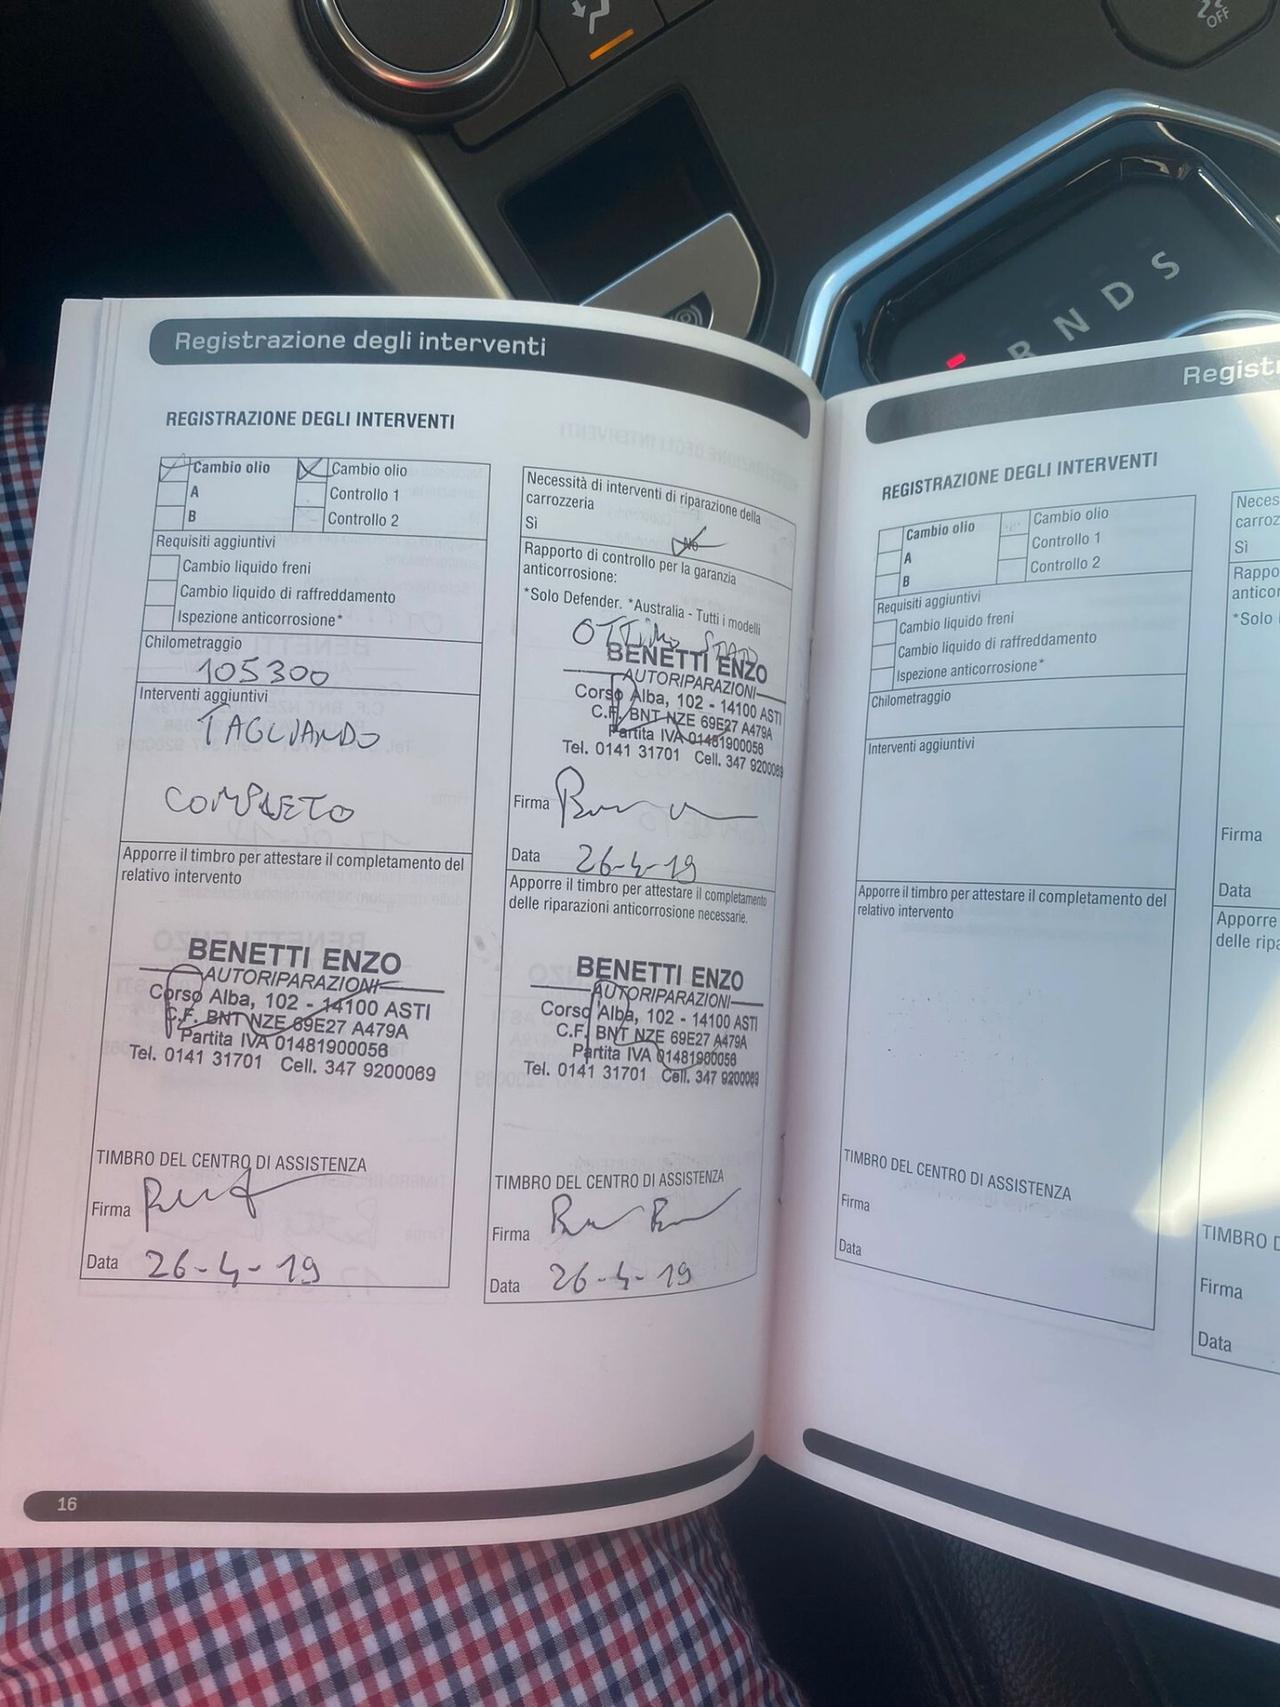 OFF
R N D S
Registrazione degli interventi
REGISTRAZIONE DEGLI INTERVENTI
Cambio olio
A
B
Cambio olio
Controllo 1
Controllo 2
Requisiti aggiuntivi
Cambio liquido freni
Cambio liquido di raffreddamento
Ispezione anticorrosione*
Chilometraggio
105300
Interventi aggiuntivi
TAGLIANDO
COMPLETO
Apporre il timbro per attestare il completamento del
relativo intervento
BENETTI ENZO
AUTORIPARAZIONI
Corso Alba, 102 - 14100 ASTI
C.F. BNT NZE 69E27 A479A
Partita IVA 01481900056
Tel. 0141 31701 Cell. 347 9200069
TIMBRO DEL CENTRO DI ASSISTENZA
Firma
Data 26-4-19
Necessità di interventi di riparazione della
carrozzeria
Sì
No
Rapporto di controllo per la garanzia
anticorrosione:
*Solo Defender. *Australia - Tutti i modelli
OTTIMO STATO
BENETTI ENZO
AUTORIPARAZIONI
Corso Alba, 102 - 14100 ASTI
C.F. BNT NZE 69E27 A479A
Partita IVA 01481900056
Tel. 0141 31701 Cell. 347 9200069
Firma
Data 26-4-19
Apporre il timbro per attestare il completamento
delle riparazioni anticorrosione necessarie.
BENETTI ENZO
AUTORIPARAZIONI
Corso Alba, 102 - 14100 ASTI
C.F. BNT NZE 69E27 A479A
Partita IVA 01481900056
Tel. 0141 31701 Cell. 347 9200069
TIMBRO DEL CENTRO DI ASSISTENZA
Firma
Data 26-4-19
16
Regist
REGISTRAZIONE DEGLI INTERVENTI
Cambio olio
A
B
Cambio olio
Controllo 1
Controllo 2
Requisiti aggiuntivi
Cambio liquido freni
Cambio liquido di raffreddamento
Ispezione anticorrosione*
Chilometraggio
Interventi aggiuntivi
Apporre il timbro per attestare il completamento del
relativo intervento
TIMBRO DEL CENTRO DI ASSISTENZA
Firma
Data
Neces
carroz
Sì
Rappo
anticor
*Solo
Firma
Data
Apporre
delle ripa
TIMBRO
Firma
Data